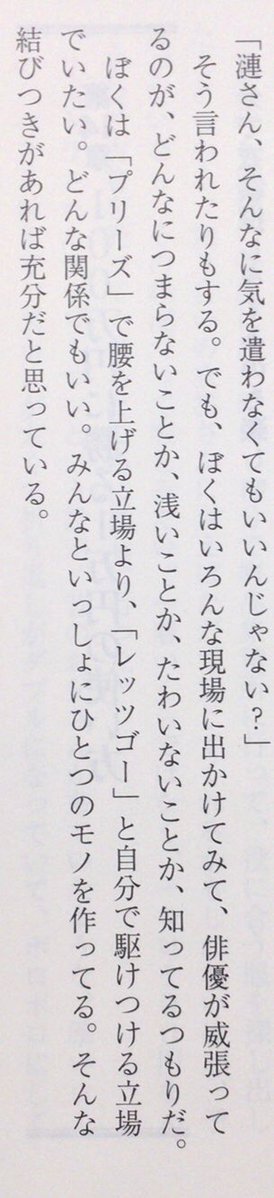 「漣さん、そんなに気を遣わなくてもいいんじゃない？」
そう言われたりもする。でも、ぼくはいろんな現場に出かけてみて、俳優が威張って
るのが、どんなにつまらないことか、浅いことか、たわいないことか、知ってるつもりだ。
ぼくは「プリーズ」で腰を上げる立場より、「レッツゴー」と自分で駆けつける立場
でいたい。どんな関係でもいい。みんなといっしょにひとつのモノを作ってる。そんな
結びつきがあれば充分だと思っている。